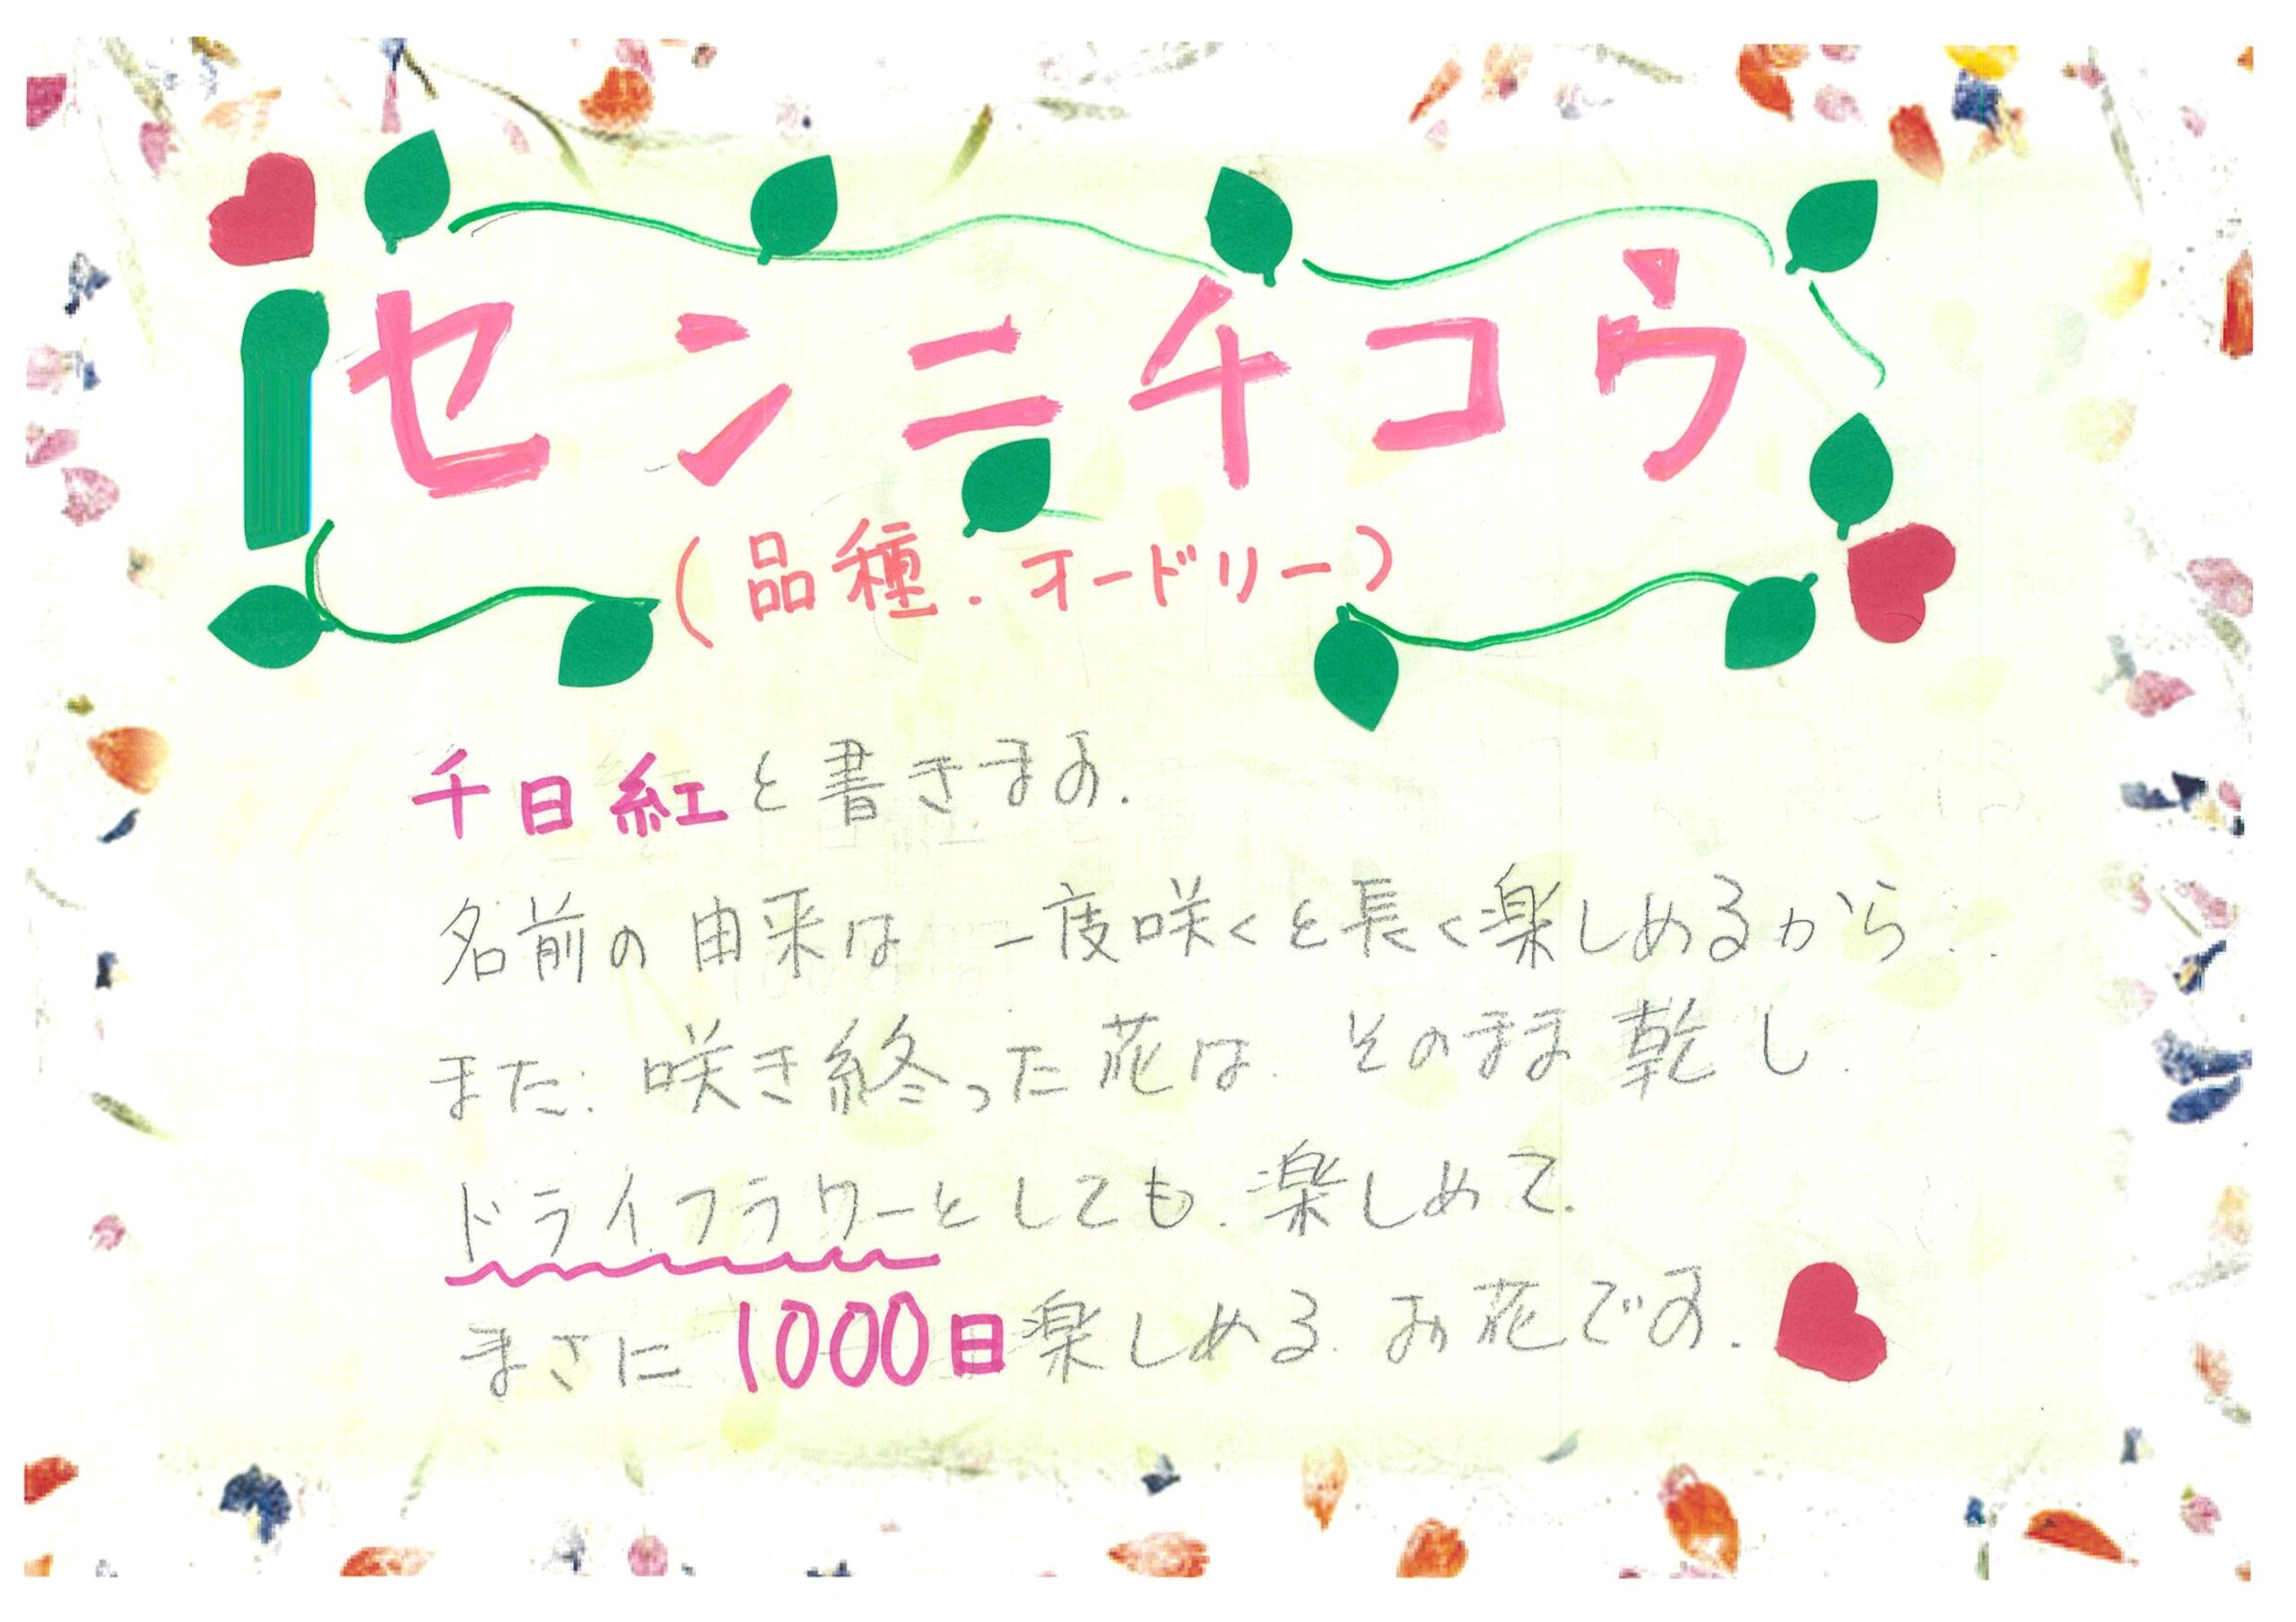 センニチコウ
(品種.オードリー)
千日紅と書きます.
名前の由来は 一度咲くと長く楽しめるから..
また. 咲き終った花は. そのまま乾し.
ドライフラワーとしても.楽しめて.
まさに1000日楽しめる.お花です.